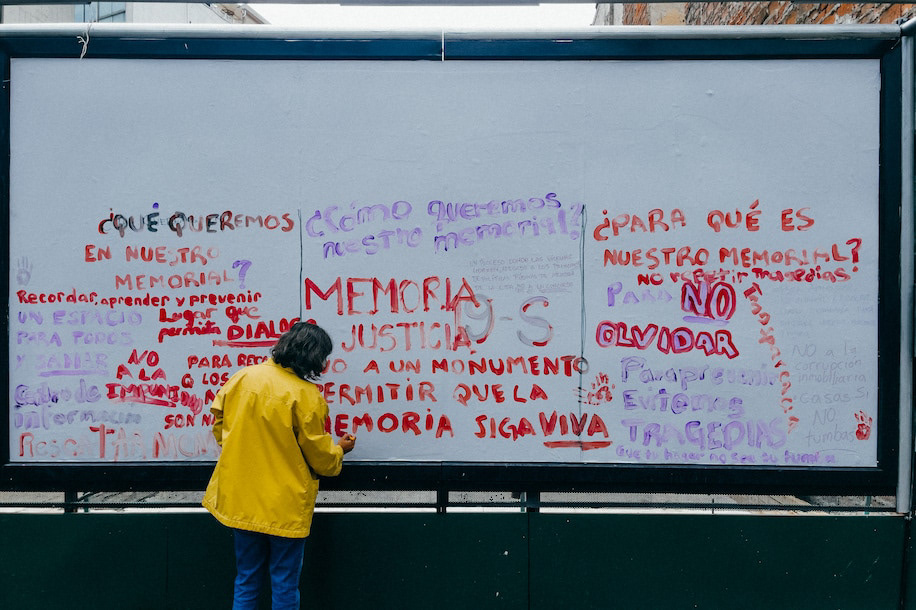 ¿QUÉ QUEREMOS
EN NUESTRO
MEMORIAL?
Recordar, aprender y prevenir
UN ESPACIO
PARA TODOS
Y SANAR
Lugar que
permita DIALOGO
NO
A LA
IMPUNIDAD
PARA
Q LOS
SON
RescaTAR
¿Cómo queremos
nuestro memorial?
MEMORIA
JUSTICIA
19-S
NO A UN MONUMENTO
PERMITIR QUE LA
MEMORIA SIGA VIVA
¿PARA QUÉ ES
NUESTRO MEMORIAL?
NO repetir Tragedias!
PARA NO
OLVIDAR
Para prevenir
Evitemos
TRAGEDIAS
que tu hogar no sea tu tumba
Transparencia
NO a la
corrupción
inmobiliaria
Casas Si
NO
tumbas